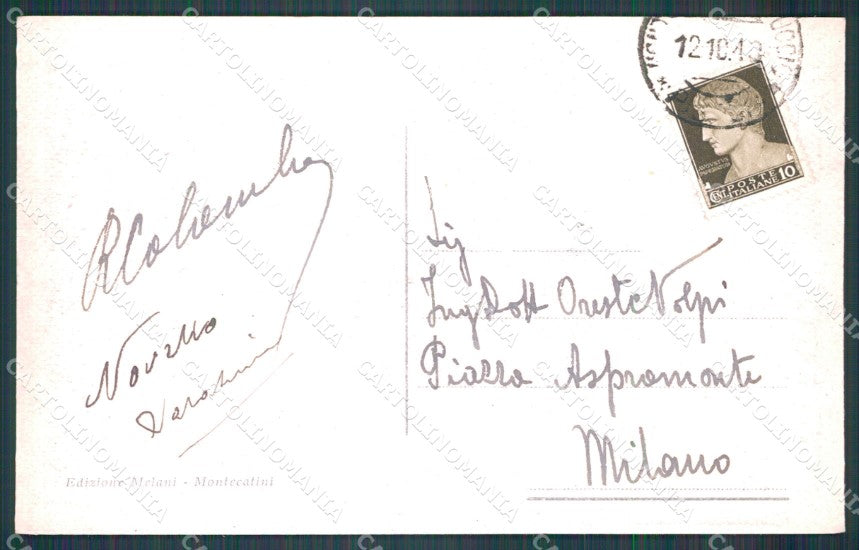 12.10.4
AVGVSTVS
CENT. POSTE 10
ITALIANE
Novello
Sig
Ing Dott Oreste Volpi
Piazza Aspromonte
Milano
Edizione Melani - Montecatini
CARTOLINOMANIA